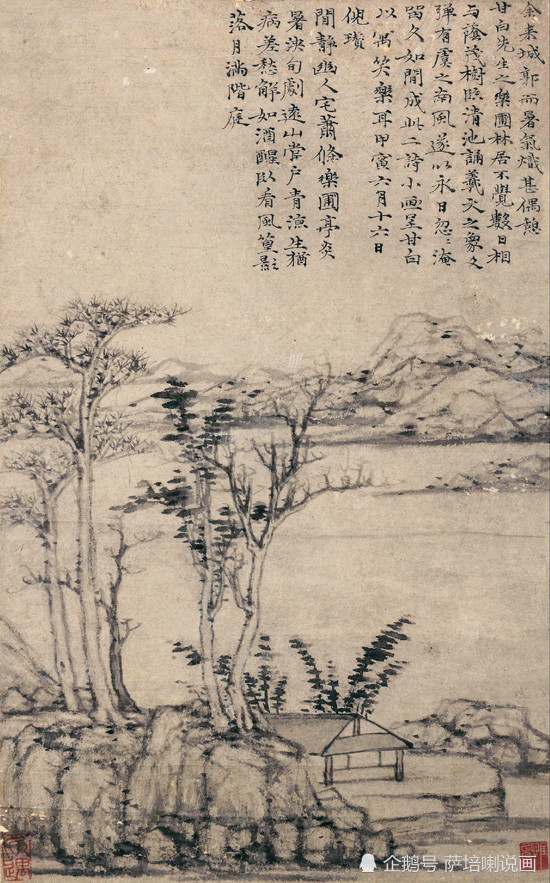 余来城郭而暑氣熾甚偶憩
甘白先生之樂圃林居不覺數日相
与蔭茂樹臨清池誦羲文之象爻
弹有虞之南風遂以永日忽々淹
留久如閒成此二詩小畫呈甘白
以寓笑樂耳甲寅六月十六日
倪瓚
閒静幽人宅蕭條樂圃亭炎
暑浹旬劇遠山當户青凉生猶
病差愁解如酒醒卧看風篁影
落月滿階庭
企鹅号 萨培喇说画